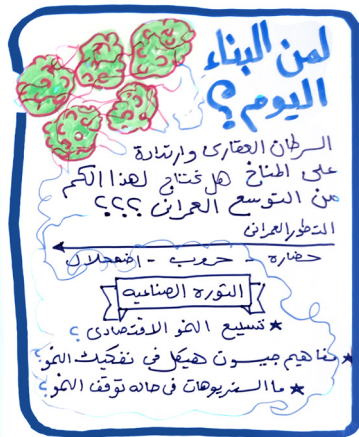 لمن البناء
اليوم؟
السرطان العقارى وارتداده
على المناخ هل نحتاج لهذا الكم
من التوسع العمرانى ؟؟؟
التطور العمرانى
حضارة - حروب - اضمحلال
الثورة الصناعيه
★ تسليع النمو الاقتصادى ؟
★ مفاهيم جيسون هيكل فى تفكيك النمو؟
★ ما السنريوهات فى حاله توقف النمو؟